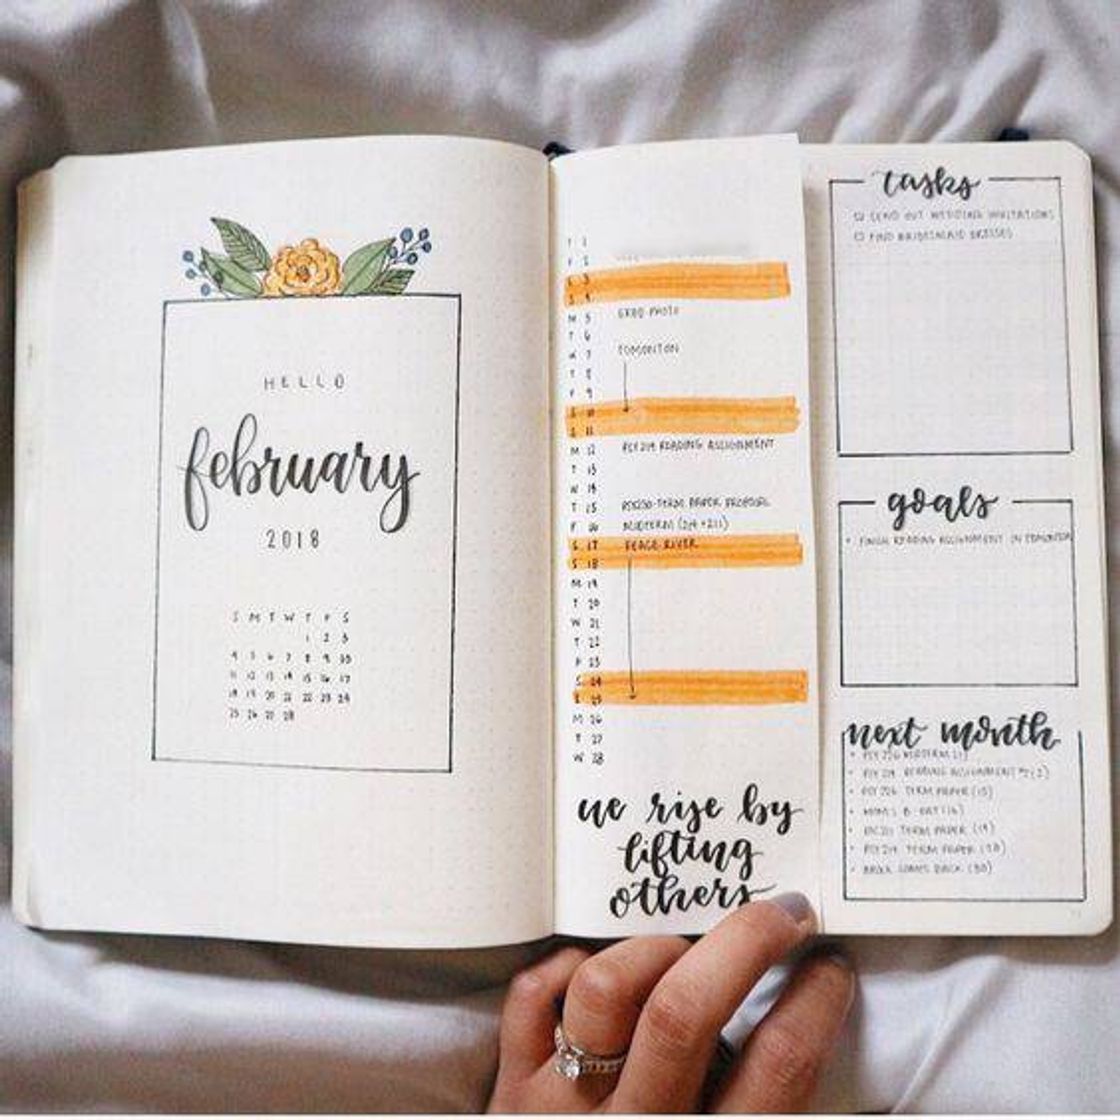 HELLO
february
2018
S M T W T F S
1 2 3
4 5 6 7 8 9 10
11 12 13 14 15 16 17
18 19 20 21 22 23 24
25 26 27 28
T 1
F 2
S 3
S 4
M 5 GRAD PHOTO
T 6
W 7 EDMONTON
T 8
F 9
S 10
S 11
M 12 PSY 219 READING ASSIGNMENT
T 13
W 14
T 15 TERM PAPER PROPOSAL
F 16 MIDTERM
S 17 PEACE RIVER
S 18
M 19
T 20
W 21
T 22
F 23
S 24
S 25
M 26
T 27
W 28
we rise by
lifting
others
tasks
SEND OUT WEDDING INVITATIONS
FIND BRIDESMAID DRESSES
goals
• FINISH READING ASSIGNMENT IN EDMONTON
next month
• MIDTERM
• READING ASSIGNMENT
• TERM PAPER (15)
• MOM'S B-DAY (16)
• TERM PAPER (19)
• TERM PAPER
• BROCK COMES BACK (30)